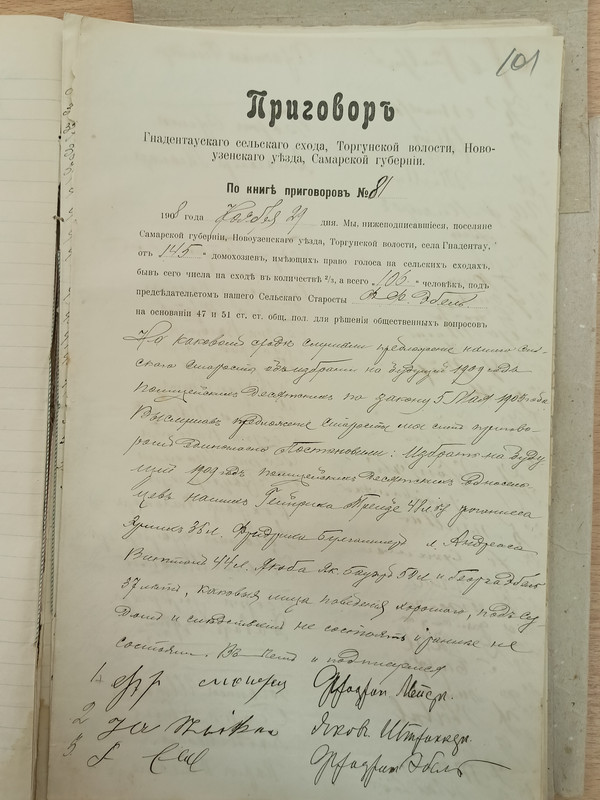 101
Приговоръ
Гнадентаускаго сельскаго схода, Торгунской волости, Ново-
узенскаго уѣзда, Самарской губерніи.
По книгѣ приговоровъ № 81
1908 года Ноября 29 дня. Мы, нижеподписавшіеся, поселяне
Самарской губерніи, Новоузенскаго уѣзда, Торгунской волости, села Гнадентау,
отъ 145 домохозяевъ, имѣющихъ право голоса на сельскихъ сходахъ,
бывъ сего числа на сходѣ въ количествѣ ²/₃, а всего 106 человѣкъ, подъ
предсѣдательствомъ нашего Сельскаго Старосты Эбель
на основаніи 47 и 51 ст. ст. общ. пол. для рѣшенія общественныхъ вопросовъ
На каковомъ сходѣ слушали предложеніе нашего Сель-
скаго Старосты объ избраніи на будущій 1909 годъ
Полицейскихъ Десятскихъ по закону 5 Мая 1903 года
Выслушавъ предложеніе Старосты мы симъ пригово-
ромъ Постановили: Избрать на буду
щій 1909 годъ полицейскихъ Десятскихъ
цевъ нашихъ Гейнриха 42 л
35 л. Фридриха л Андреаса
44 л. Якоба Як. 54 л и Георга Эбель
37 лѣтъ, каковыя лица поведенія хорошаго, подъ Су-
домъ и слѣдствіемъ не состоятъ и ранѣе не
состояли. Въ чемъ и подписуемся
1 Фридрих
2 Яков
3 Фридрих Эбель